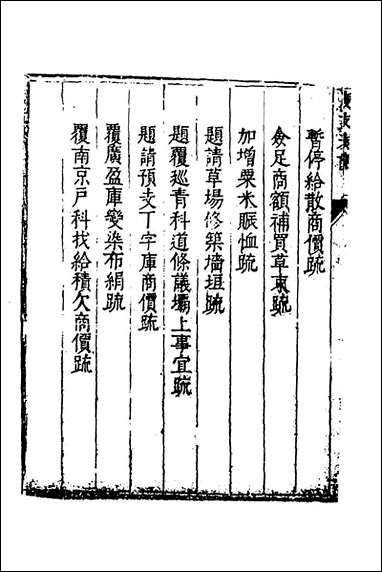 暫停給散商價疏
僉足商額補買草束疏
加增粟米賑恤疏
題請草場修築墻垣疏
題覆巡青科道條議壩上事宜疏
題請預支丁字庫商價疏
覆廣盈庫變染布絹疏
覆南京戶科找給積欠商價疏